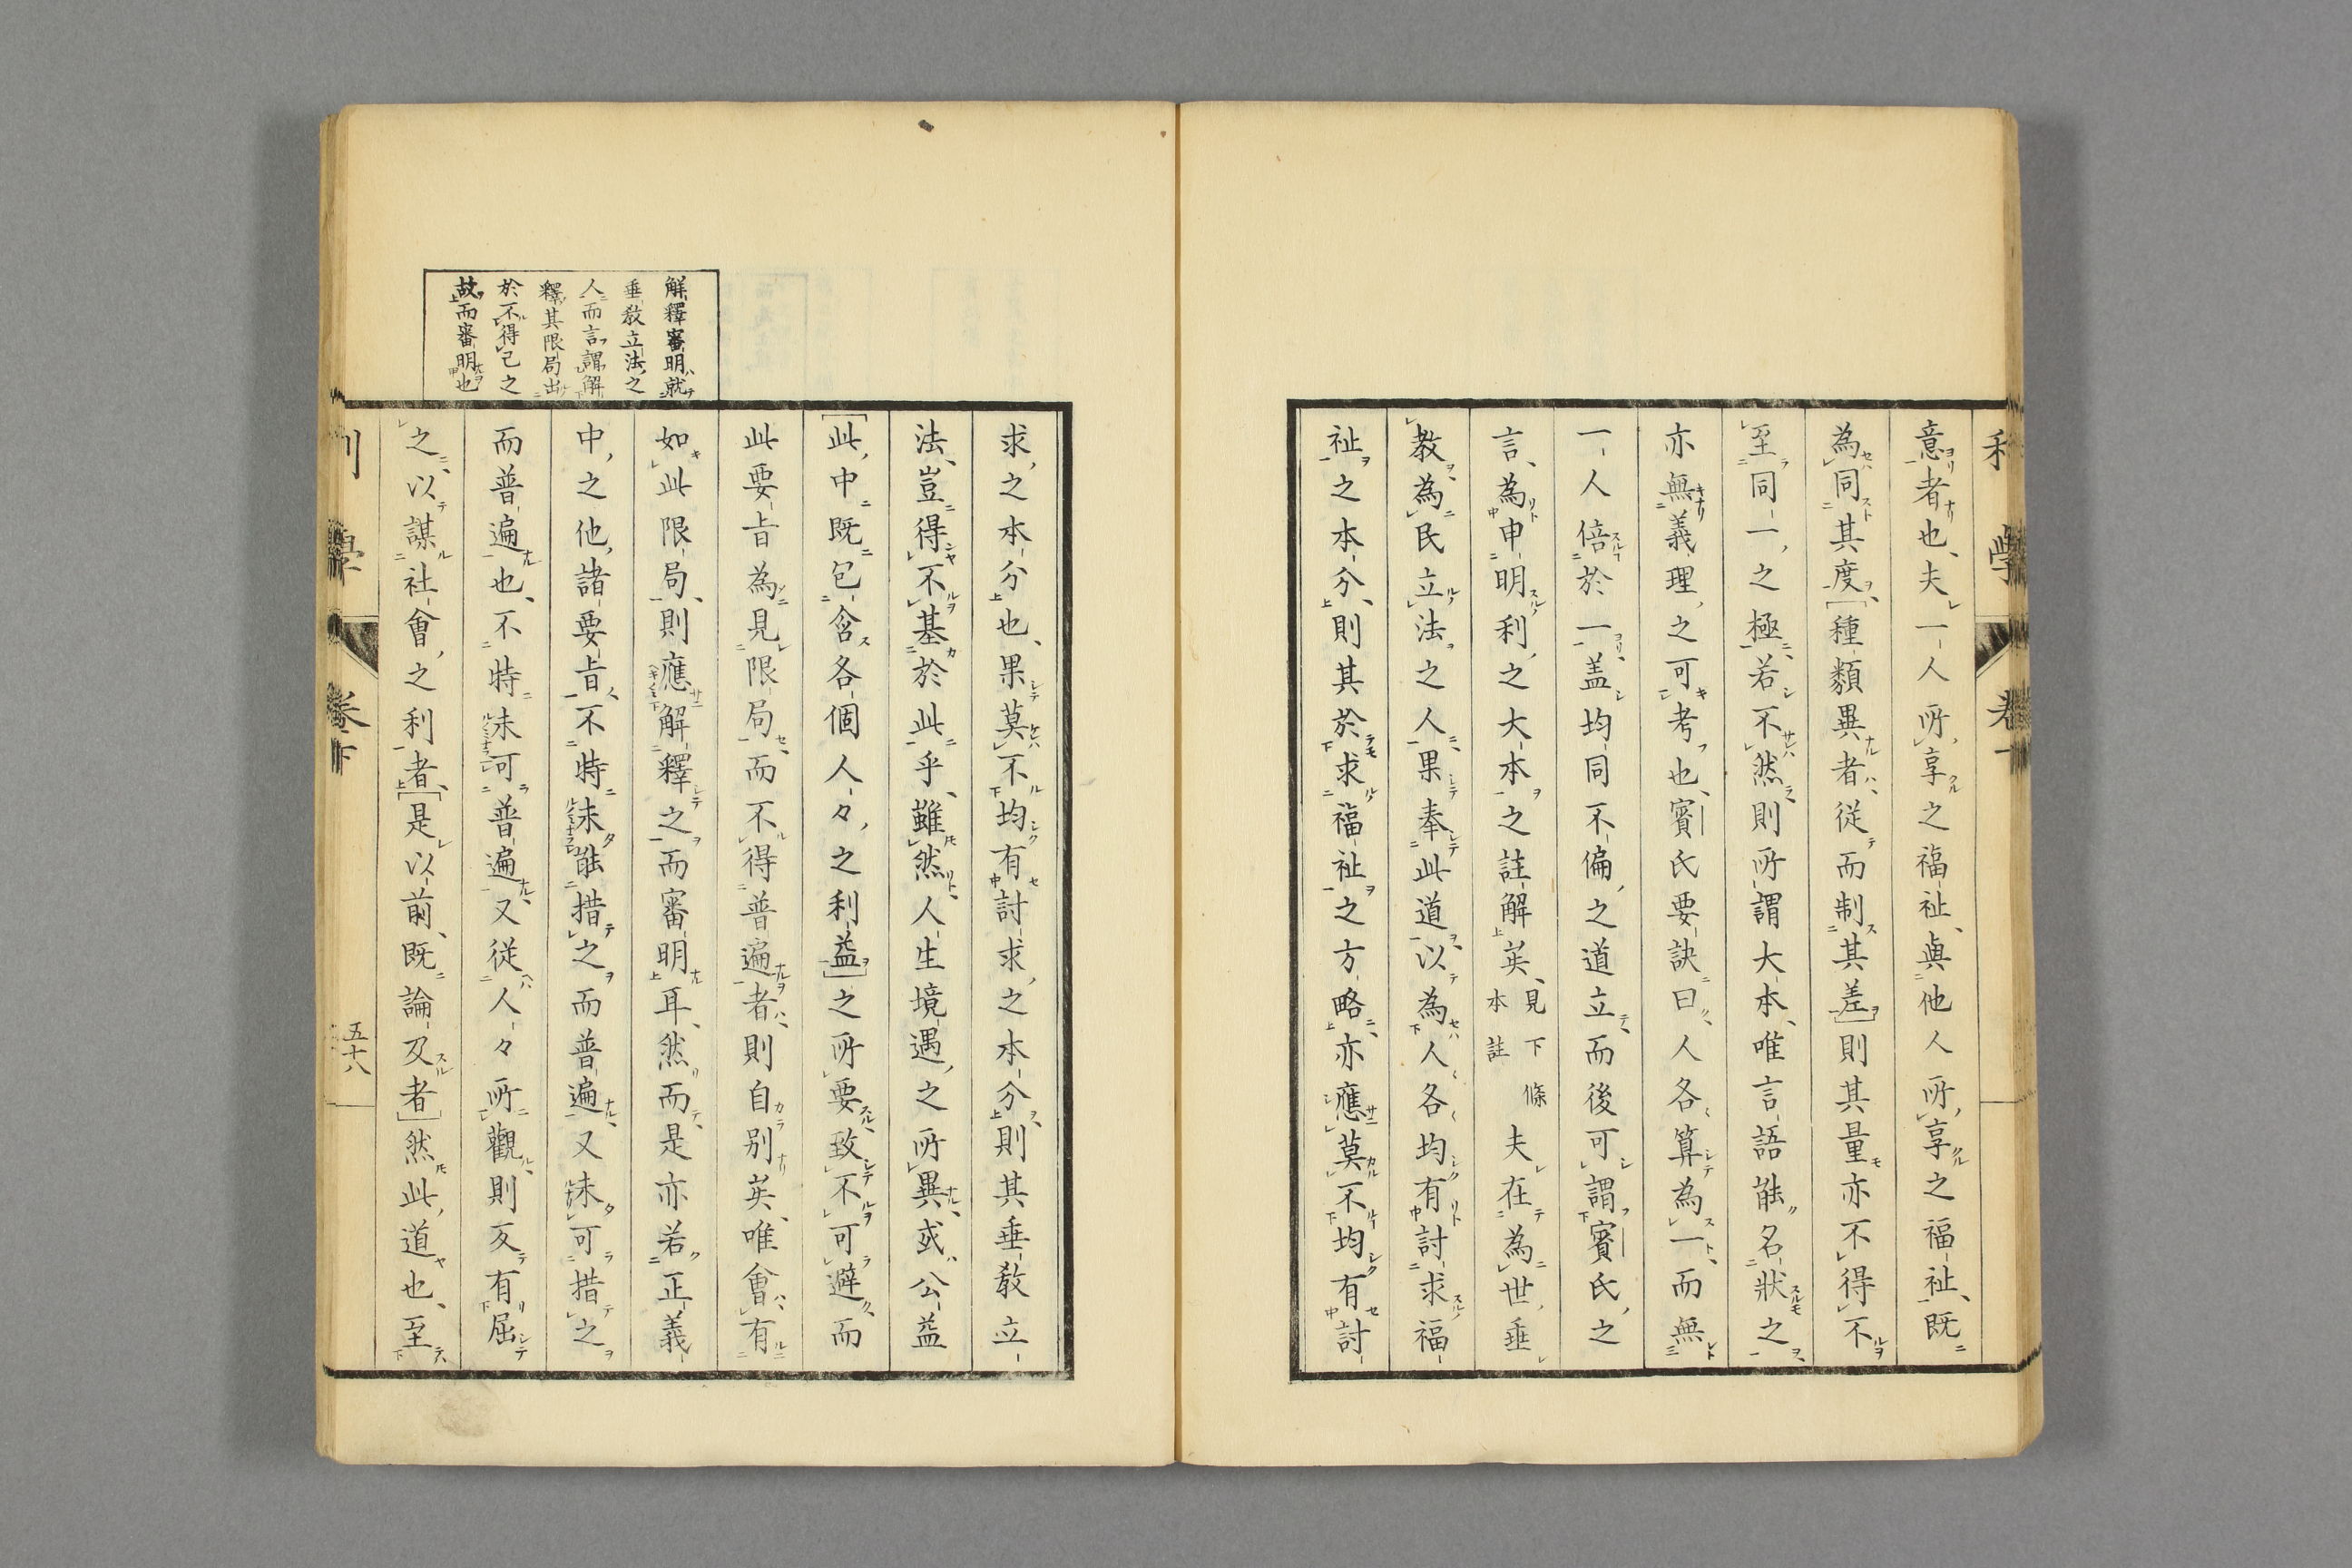 意者也、夫一人所享之福祉、與他人所享之福祉、既
為同其度、[種類異者、從而制其差]則其量亦不得不
至同一之極、若不然則所謂大本、唯言語能名狀之、
亦無義理之可考也、賓氏要訣曰、人各算為一、而無
一人倍於一、盖均同不偏之道立、而後可謂賓氏之
言、為申明利之大本之註解矣、見下條本註 夫在為世垂
教、為民立法之人、果奉此道、以為人各均有討求福
祉之本分、則其於求福祉之方略、亦應莫不均有討
求之本分也、果莫不均有討求之本分、則其垂教立
法、豈得不基於此乎、雖然、人生境遇之所異、或公益
[此中既包含各個人々之利益]之所要致不可避、而
此要旨為見限局、而不得普遍者、則自別矣、唯會有
如此限局、則應解釋之而審明耳、然而是亦若正義
中之他諸要旨、不特未能措之而普遍、又未可措之
而普遍也、不特未可普遍、又從人々所觀、則反有屈
之、以謀社會之利者、[是以前、既論及者]然此道也、至
解釋審明就
垂教立法之
人而言謂解
釋其限局出
於不得已之
故而審明也
利學 卷下
五十八